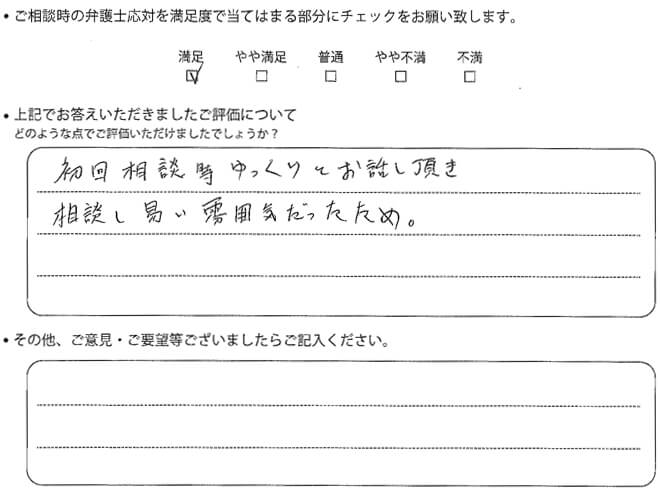 • ご相談時の弁護士応対を満足度で当てはまる部分にチェックをお願い致します。
満足 やや満足 普通 やや不満 不満
☑ □ □ □ □
• 上記でお答えいただきましたご評価について
どのような点でご評価いただけましたでしょうか？
初回相談時ゆっくりとお話し頂き
相談し易い雰囲気だったため。
• その他、ご意見・ご要望等ございましたらご記入ください。